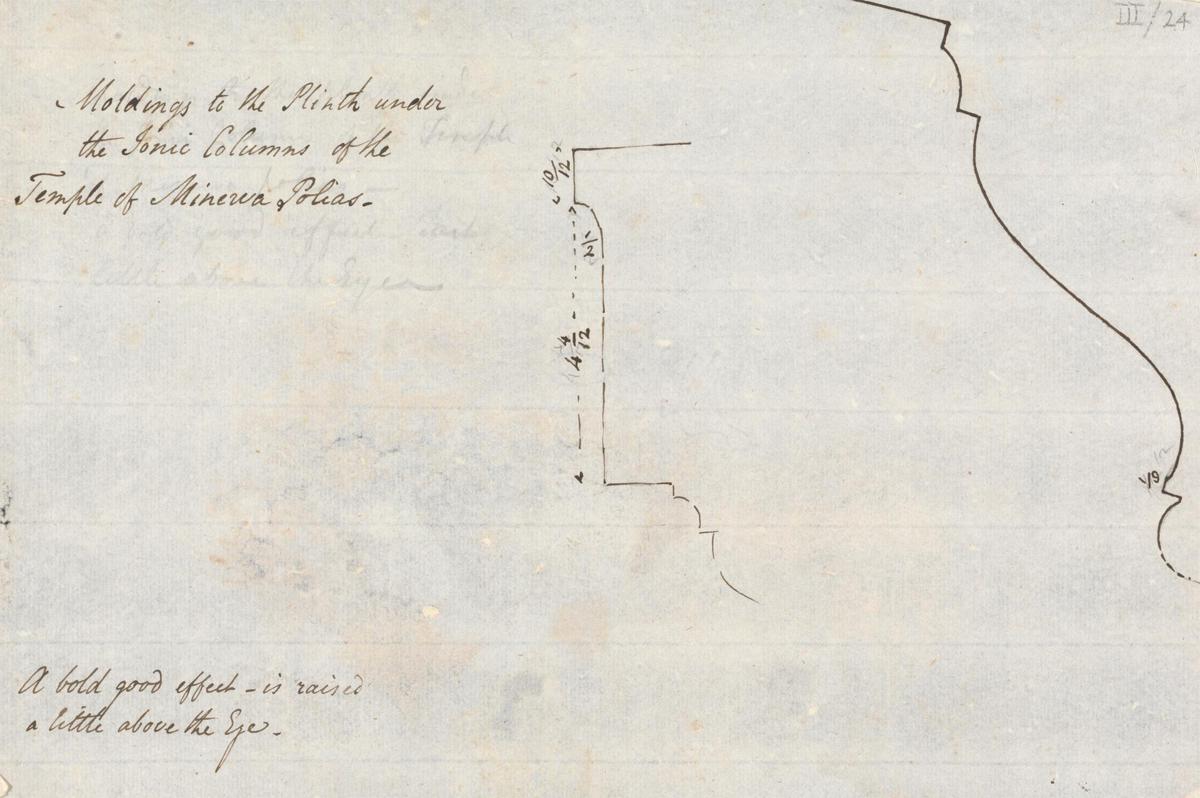 III/24
Moldings to the Plinth under
the Ionic Columns of the
Temple of Minerva Polias-
10/12
1/2
4 4/12
1/10
A bold good effect - is raised
a little above the Eye-